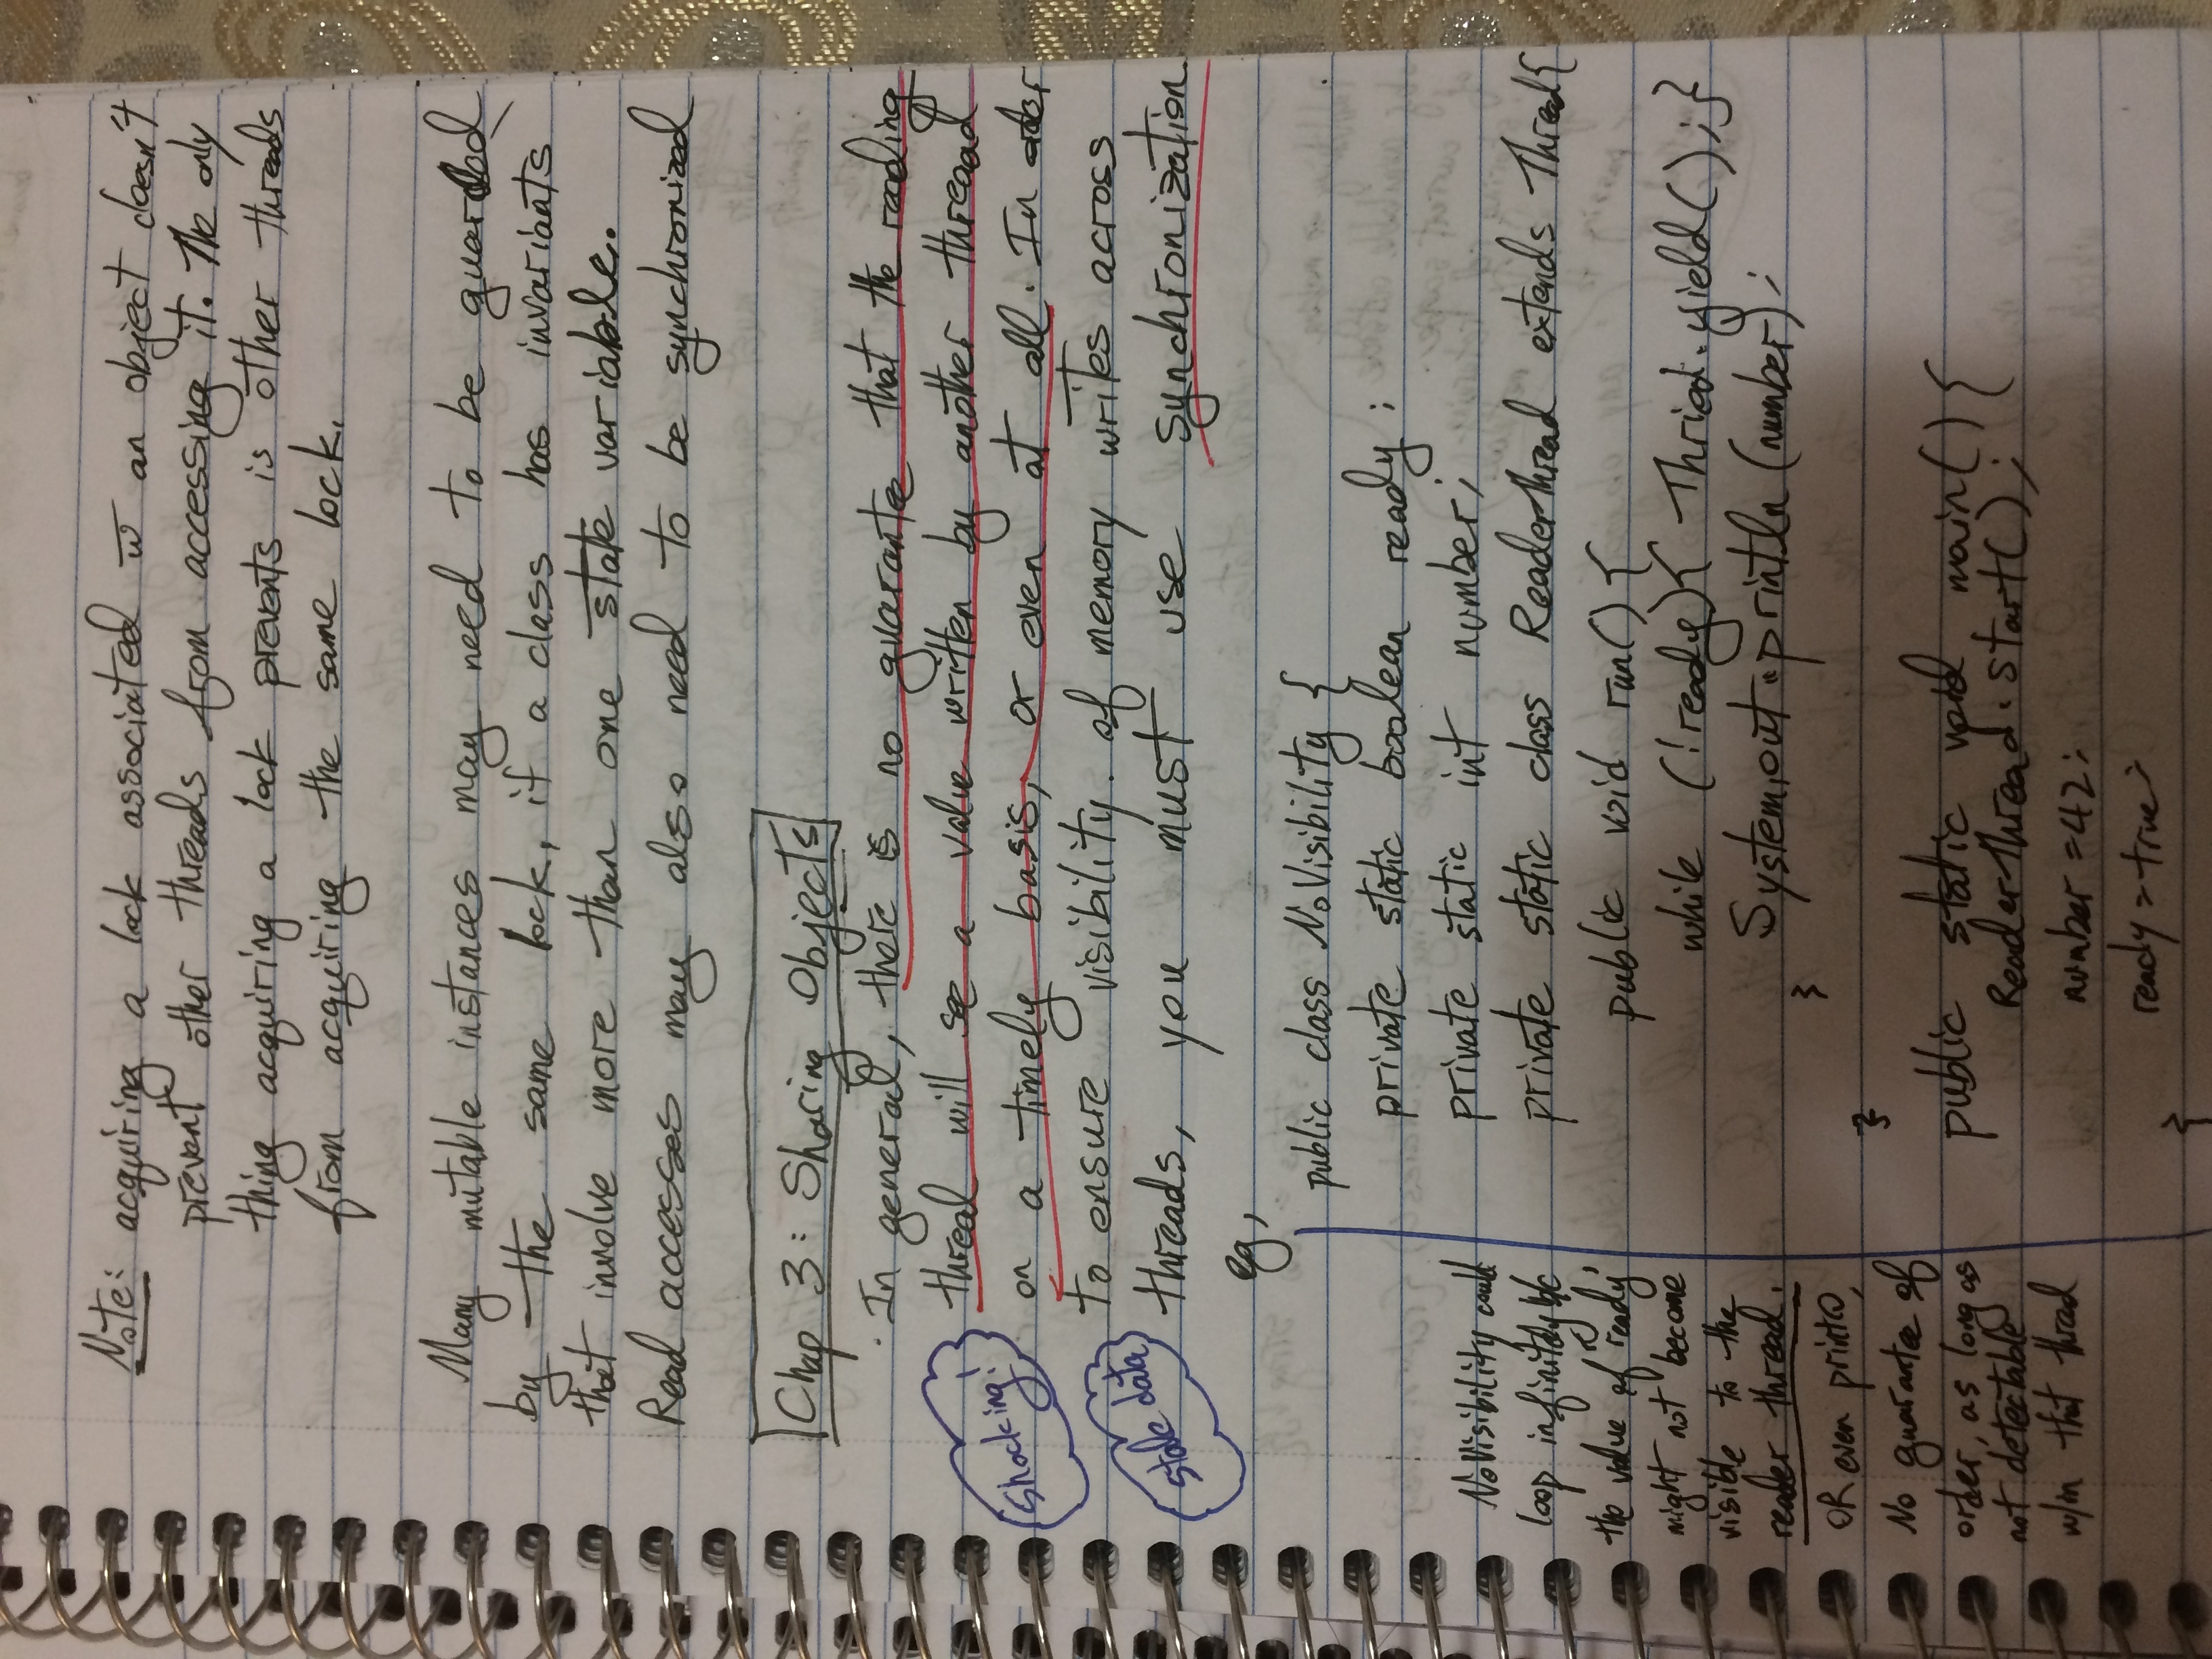 Note: acquiring a lock associated w̅ an object doesn't
prevent other threads from accessing it. The only
thing acquiring a lock prevents is other threads
from acquiring the same lock.
Many mutable instances may need to be guarded
by the same lock, if a class has invariants
that involve more than one state variable.
Read accesses may also need to be synchronized
Chap 3: Sharing Objects
· In general, there is no guarantee that the reading
thread will see a value written by another thread
on a timely basis, or even at all. In order
to ensure visibility of memory writes across
threads, you must use synchronization.
Shocking!
stale data
eg,
public class NoVisibility {
private static boolean ready;
private static int number;
private static class ReaderThread extends Thread{
public void run() {
while (!ready){ Thread.yield();}
System.out.println(number);
}
}
public static void main() {
ReaderThread.start();
number = 42;
ready = true;
}
NoVisibility could
loop infinitely b/c
the value of 'ready'
might not become
visible to the
reader thread.
OR even print 0,
No guarantee of
order, as long as
not detectable
w/in that thread